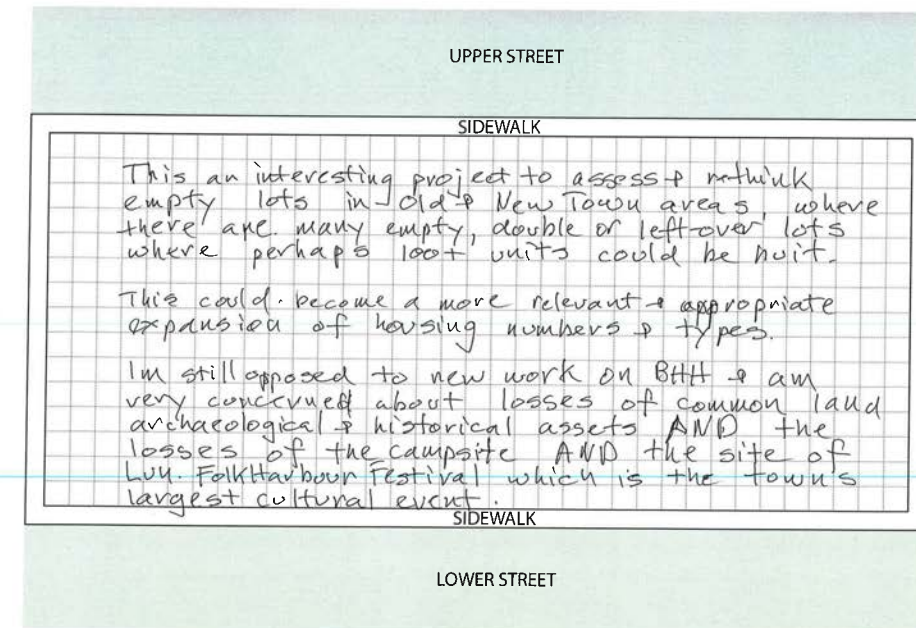 UPPER STREET
SIDEWALK
This an interesting project to assess & rethink
empty lots in old & New Town areas, where
there are many empty, double or left-over lots
where perhaps 100+ units could be buit.
This could become a more relevant & appropriate
expansion of housing numbers & types.
Im still opposed to new work on BHH & am
very concerned about losses of common land
archaeological & historical assets AND the
losses of the campsite AND the site of
Lun. Folk Harbour Festival which is the town's
largest cultural event.
SIDEWALK
LOWER STREET